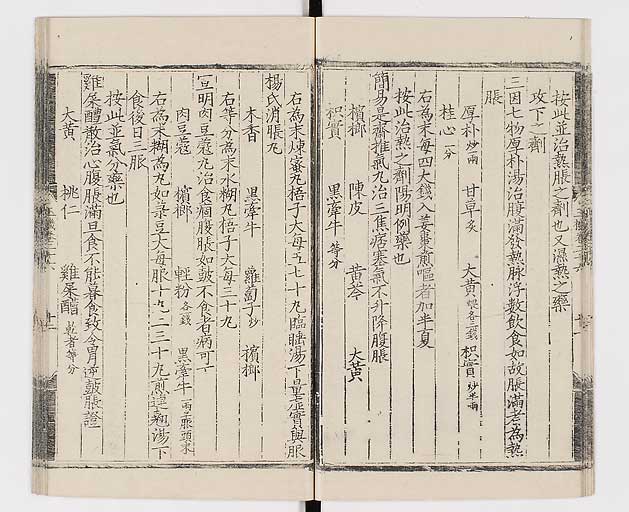 按此並治熱脹之劑也又濕熱之藥
攻下之劑
三因七物厚朴湯治腹滿發熱脉浮數飲食如故脹滿者為熱
脹
厚朴 炒兩 甘草 炙 大黃 各二錢 枳實 炒半兩
桂心 一分
右為末每四大錢入姜棗煎嘔者加半夏
按此治熱之劑陽明例藥也
簡易是齋推氣丸治三焦痞塞氣不升降腹脹
檳榔 陳皮 黃芩 大黃
枳實 黑牽牛 等分
右為末煉蜜丸梧子大每五七十丸臨睡湯下量虛實與服
楊氏消脹丸
木香 黑牽牛 蘿蔔子 炒 檳榔
右等分為末水糊丸梧子大每三十丸
宣明肉豆蔻丸治食痼腹脹如皷不食者病可下
肉豆蔻 檳榔 輕粉 各錢 黑牽牛 兩半取頭末
右為末糊為丸如菉豆大每服十丸二三十丸煎連翹湯下
食後日三服
按此並氣分藥也
雞屎醴散治心腹脹滿旦食不能暮食致令胃逆皷脹證
大黃 桃仁 雞屎醴 乾者等分